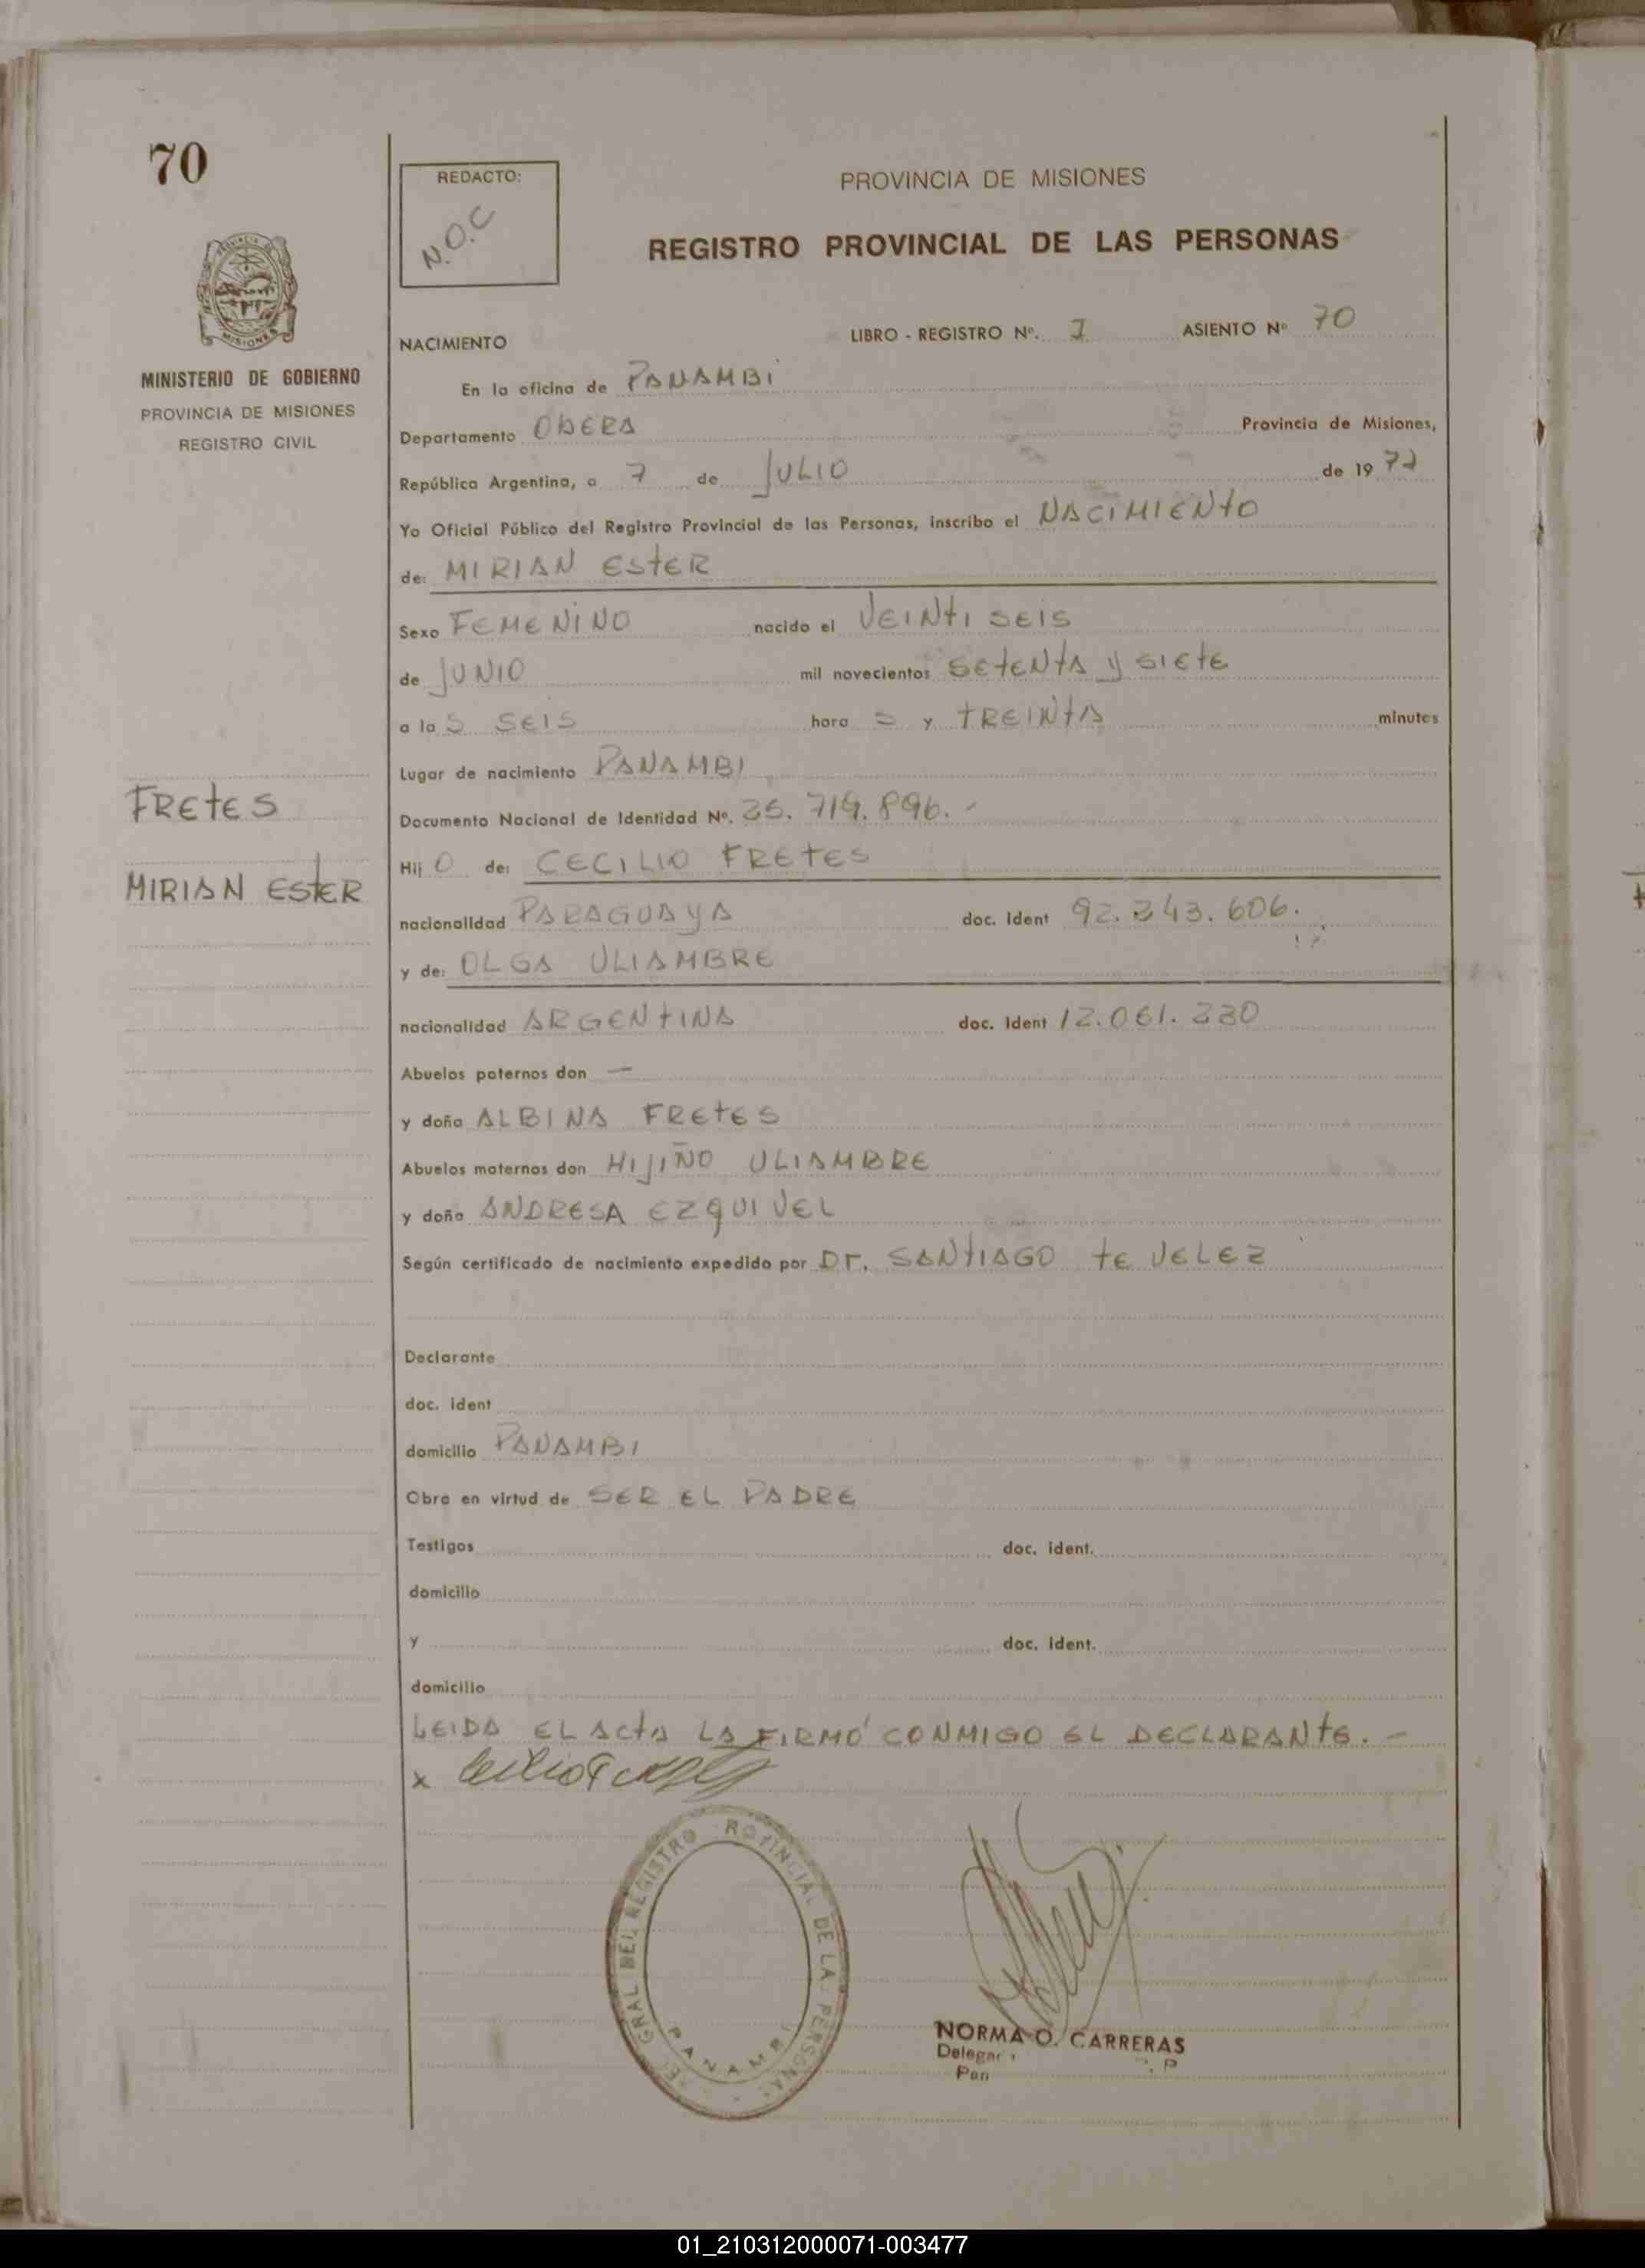 70
REDACTO:
N.O.C
PROVINCIA DE MISIONES
REGISTRO PROVINCIAL DE LAS PERSONAS
MINISTERIO DE GOBIERNO
PROVINCIA DE MISIONES
REGISTRO CIVIL
MISIONES
NACIMIENTO LIBRO - REGISTRO Nº. 1 ASIENTO Nº 70
En la oficina de PANAMBI
Departamento OBERA Provincia de Misiones,
República Argentina, a 7 de JULIO de 19 77
Yo Oficial Público del Registro Provincial de las Personas, inscribo el NACIMIENTO
de: MIRIAN ESTER
Sexo FEMENINO nacido el VEINTI SEIS
de JUNIO mil novecientos SETENTA Y SIETE
a la S SEIS hora S y TREINTA minutos
Lugar de nacimiento PANAMBI
FRETES
MIRIAN ESTER
Documento Nacional de Identidad Nº. 25.719.896.-
Hij O de: CECILIO FRETES
nacionalidad PARAGUAYA doc. Ident 92.343.606.
y de: OLGA ULIAMBRE
nacionalidad ARGENTINA doc. Ident 12.061.330
Abuelos paternos don —
y doña ALBINA FRETES
Abuelos maternos don HIJIÑO ULIAMBRE
y doña ANDRESA EZQUIVEL
Según certificado de nacimiento expedido por Dr. SANTIAGO TE VELEZ
Declarante
doc. Ident
domicilio PANAMBI
Obra en virtud de SER EL PADRE
Testigos doc. ident.
domicilio
y doc. ident.
domicilio
LEIDA EL ACTA LA FIRMÓ CONMIGO EL DECLARANTE.-
x
GRAL DEL REGISTRO DE LA PERSONAS
PANAMBI
NORMA O. CARRERAS
01_210312000071-003477